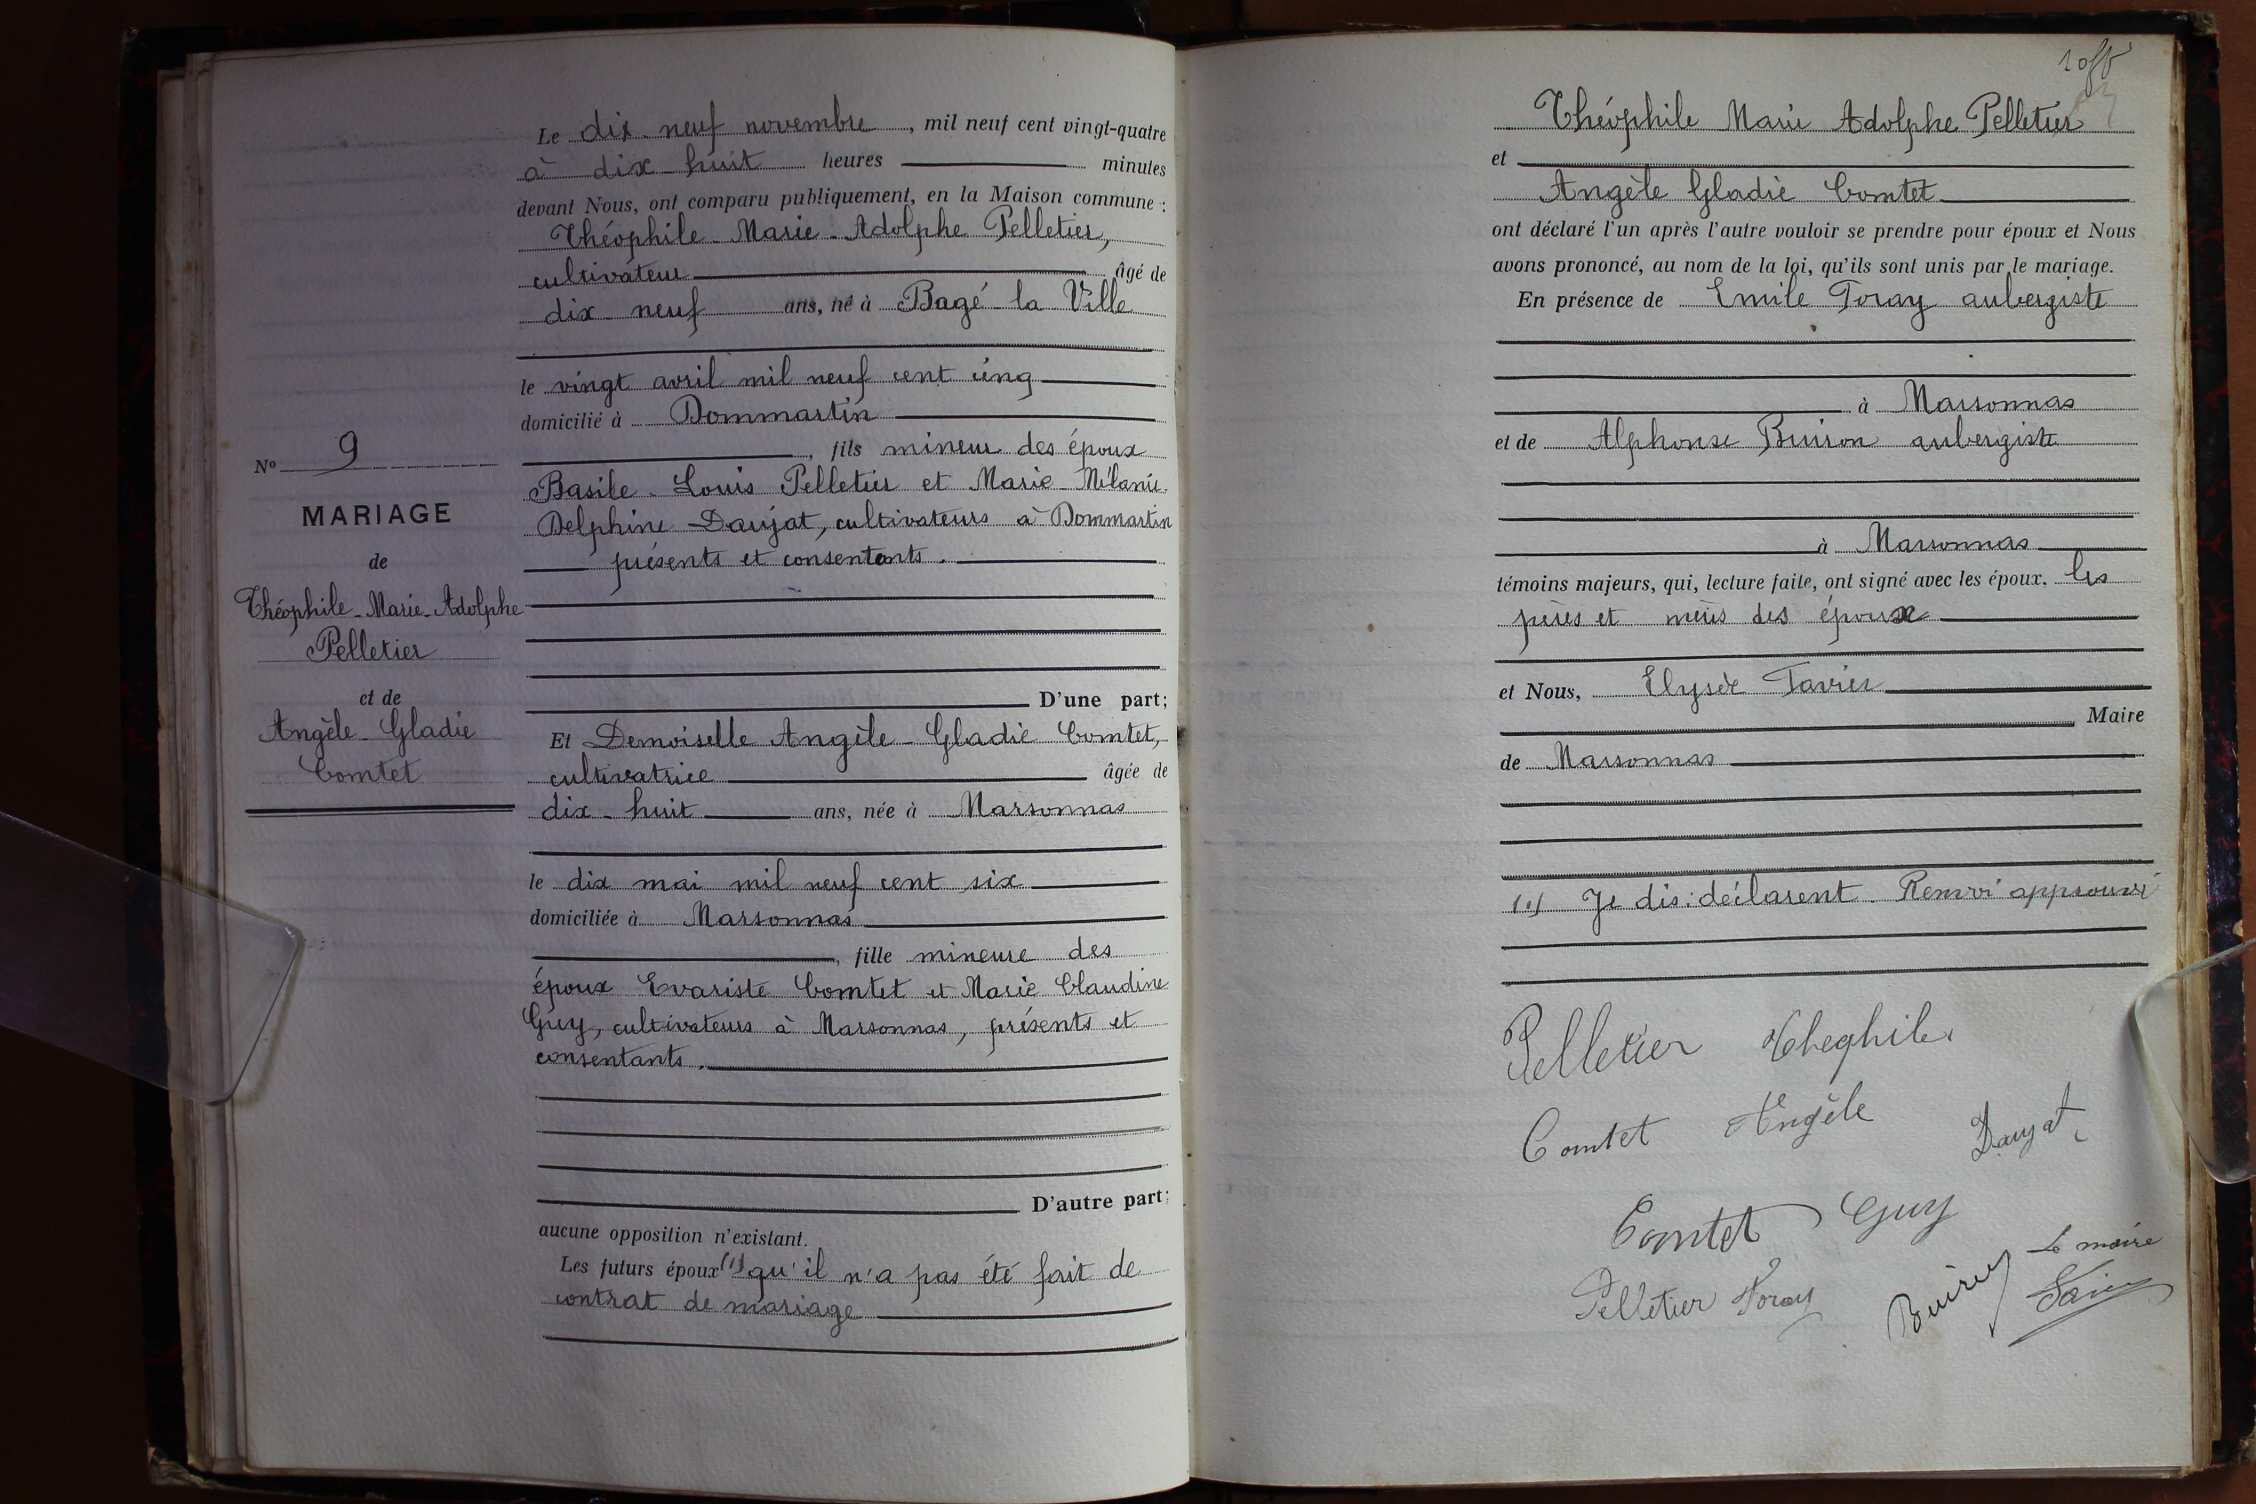 Le dix-neuf novembre, mil neuf cent vingt-quatre
à dix-huit heures minutes
devant Nous, ont comparu publiquement, en la Maison commune :
Théophile-Marie-Adolphe Pelletier,
cultivateur âgé de
dix-neuf ans, né à Bagé la Ville
le vingt avril mil neuf cent cinq
domicilié à Dommartin
, fils mineur des époux
Basile-Louis Pelletier et Marie-Mélanie
Delphine Daujat, cultivateurs à Dommartin
présents et consentants.
D'une part;
Et Demoiselle Angèle-Gladie Comtet,
cultivatrice âgée de
dix-huit ans, née à Marsonnas
le dix mai mil neuf cent six
domiciliée à Marsonnas
, fille mineure des
époux Evariste Comtet et Marie Claudine
Guy, cultivateurs à Marsonnas, présents et
consentants.
D'autre part;
aucune opposition n'existant.
Les futurs époux (1) qu'il n'a pas été fait de
contrat de mariage
No 9
MARIAGE
de
Théophile-Marie-Adolphe
Pelletier
et de
Angèle-Gladie
Comtet
Théophile Marie Adolphe Pelletier
et
Angèle Gladie Comtet
ont déclaré l'un après l'autre vouloir se prendre pour époux et Nous
avons prononcé, au nom de la loi, qu'ils sont unis par le mariage.
En présence de Emile Foray aubergiste
à Marsonnas
et de Alphonse Buiron aubergiste
à Marsonnas
témoins majeurs, qui, lecture faite, ont signé avec les époux. les
pères et mères des époux
et Nous, Elysée Favier
Maire
de Marsonnas
(1) Je dis: déclarent. Renvoi approuvé
Pelletier Theophile
Comtet Angèle
Daujat
Comtet Guy
Le maire
Pelletier Foray Buiron Favier